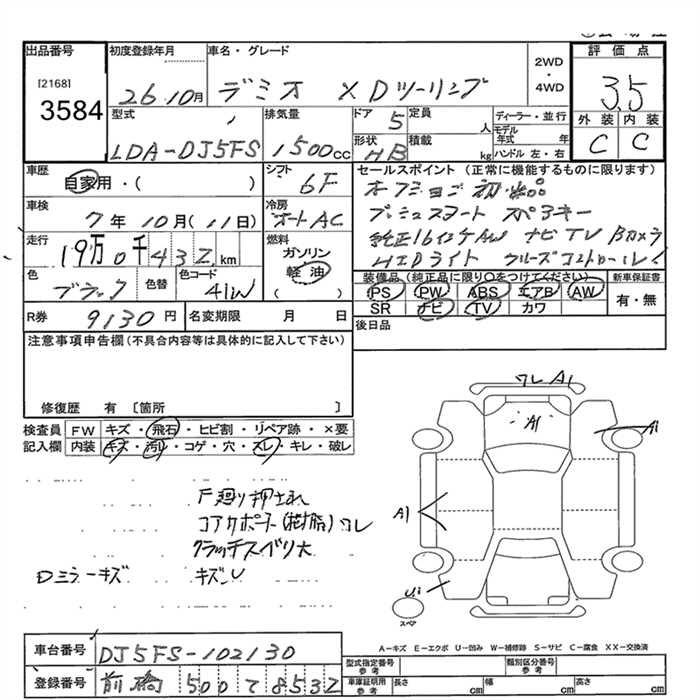 出品番号 初度登録年月 車名・グレード 2WD・4WD 評価点
[2168]
3584 26.10月 デミオ XDツーリング 3.5
型式 排気量 ドア 5 定員 人 ディーラー・並行 外装 内装
LDA-DJ5FS 1500cc 形状 HB 積載 kg モデル年式 年 ハンドル 左・右 C C
車歴 自家用・( ) シフト 6F セールスポイント (正常に機能するものに限ります)
車検 7年10月(11日) 冷房 オートAC
プッシュスタート スペアキー
走行 19万0千432km 燃料 ガソリン 軽油 ( ) 純正16インチAW ナビ TV Bカメラ
LEDライト クルーズコントロール
色 ブラック 色替 色コード 41W 装備品 (純正品に限り○をつけてください) 新車保証書
PS PW ABS エアB AW 有・無
R券 9130円 名変期限 月 日 SR ナビ TV カワ
後日品
注意事項申告欄 (不具合内容等は具体的に記入して下さい)
修復歴 有 [箇所 ]
検査員 FW キズ・飛石・ヒビ割・リペア跡・×要
記入欄 内装 キズ・汚れ・コゲ・穴・スレ・キレ・破レ
ワレ A1
A1
A1
A1
F廻り押され
コアサポート(樹脂)ワレ
クラッチスベリ大
Dミラーキズ キズ、U
U1
スペア
A-キズ E-エクボ U-凹み W-補修跡 S-サビ C-腐食 XX-交換済
車台番号 DJ5FS-102130 型式指定番号 参考 類別区分番号 参考
登録番号 前橋 500 て 8532 車庫証明用 参考 長さ cm 幅 cm 高さ cm